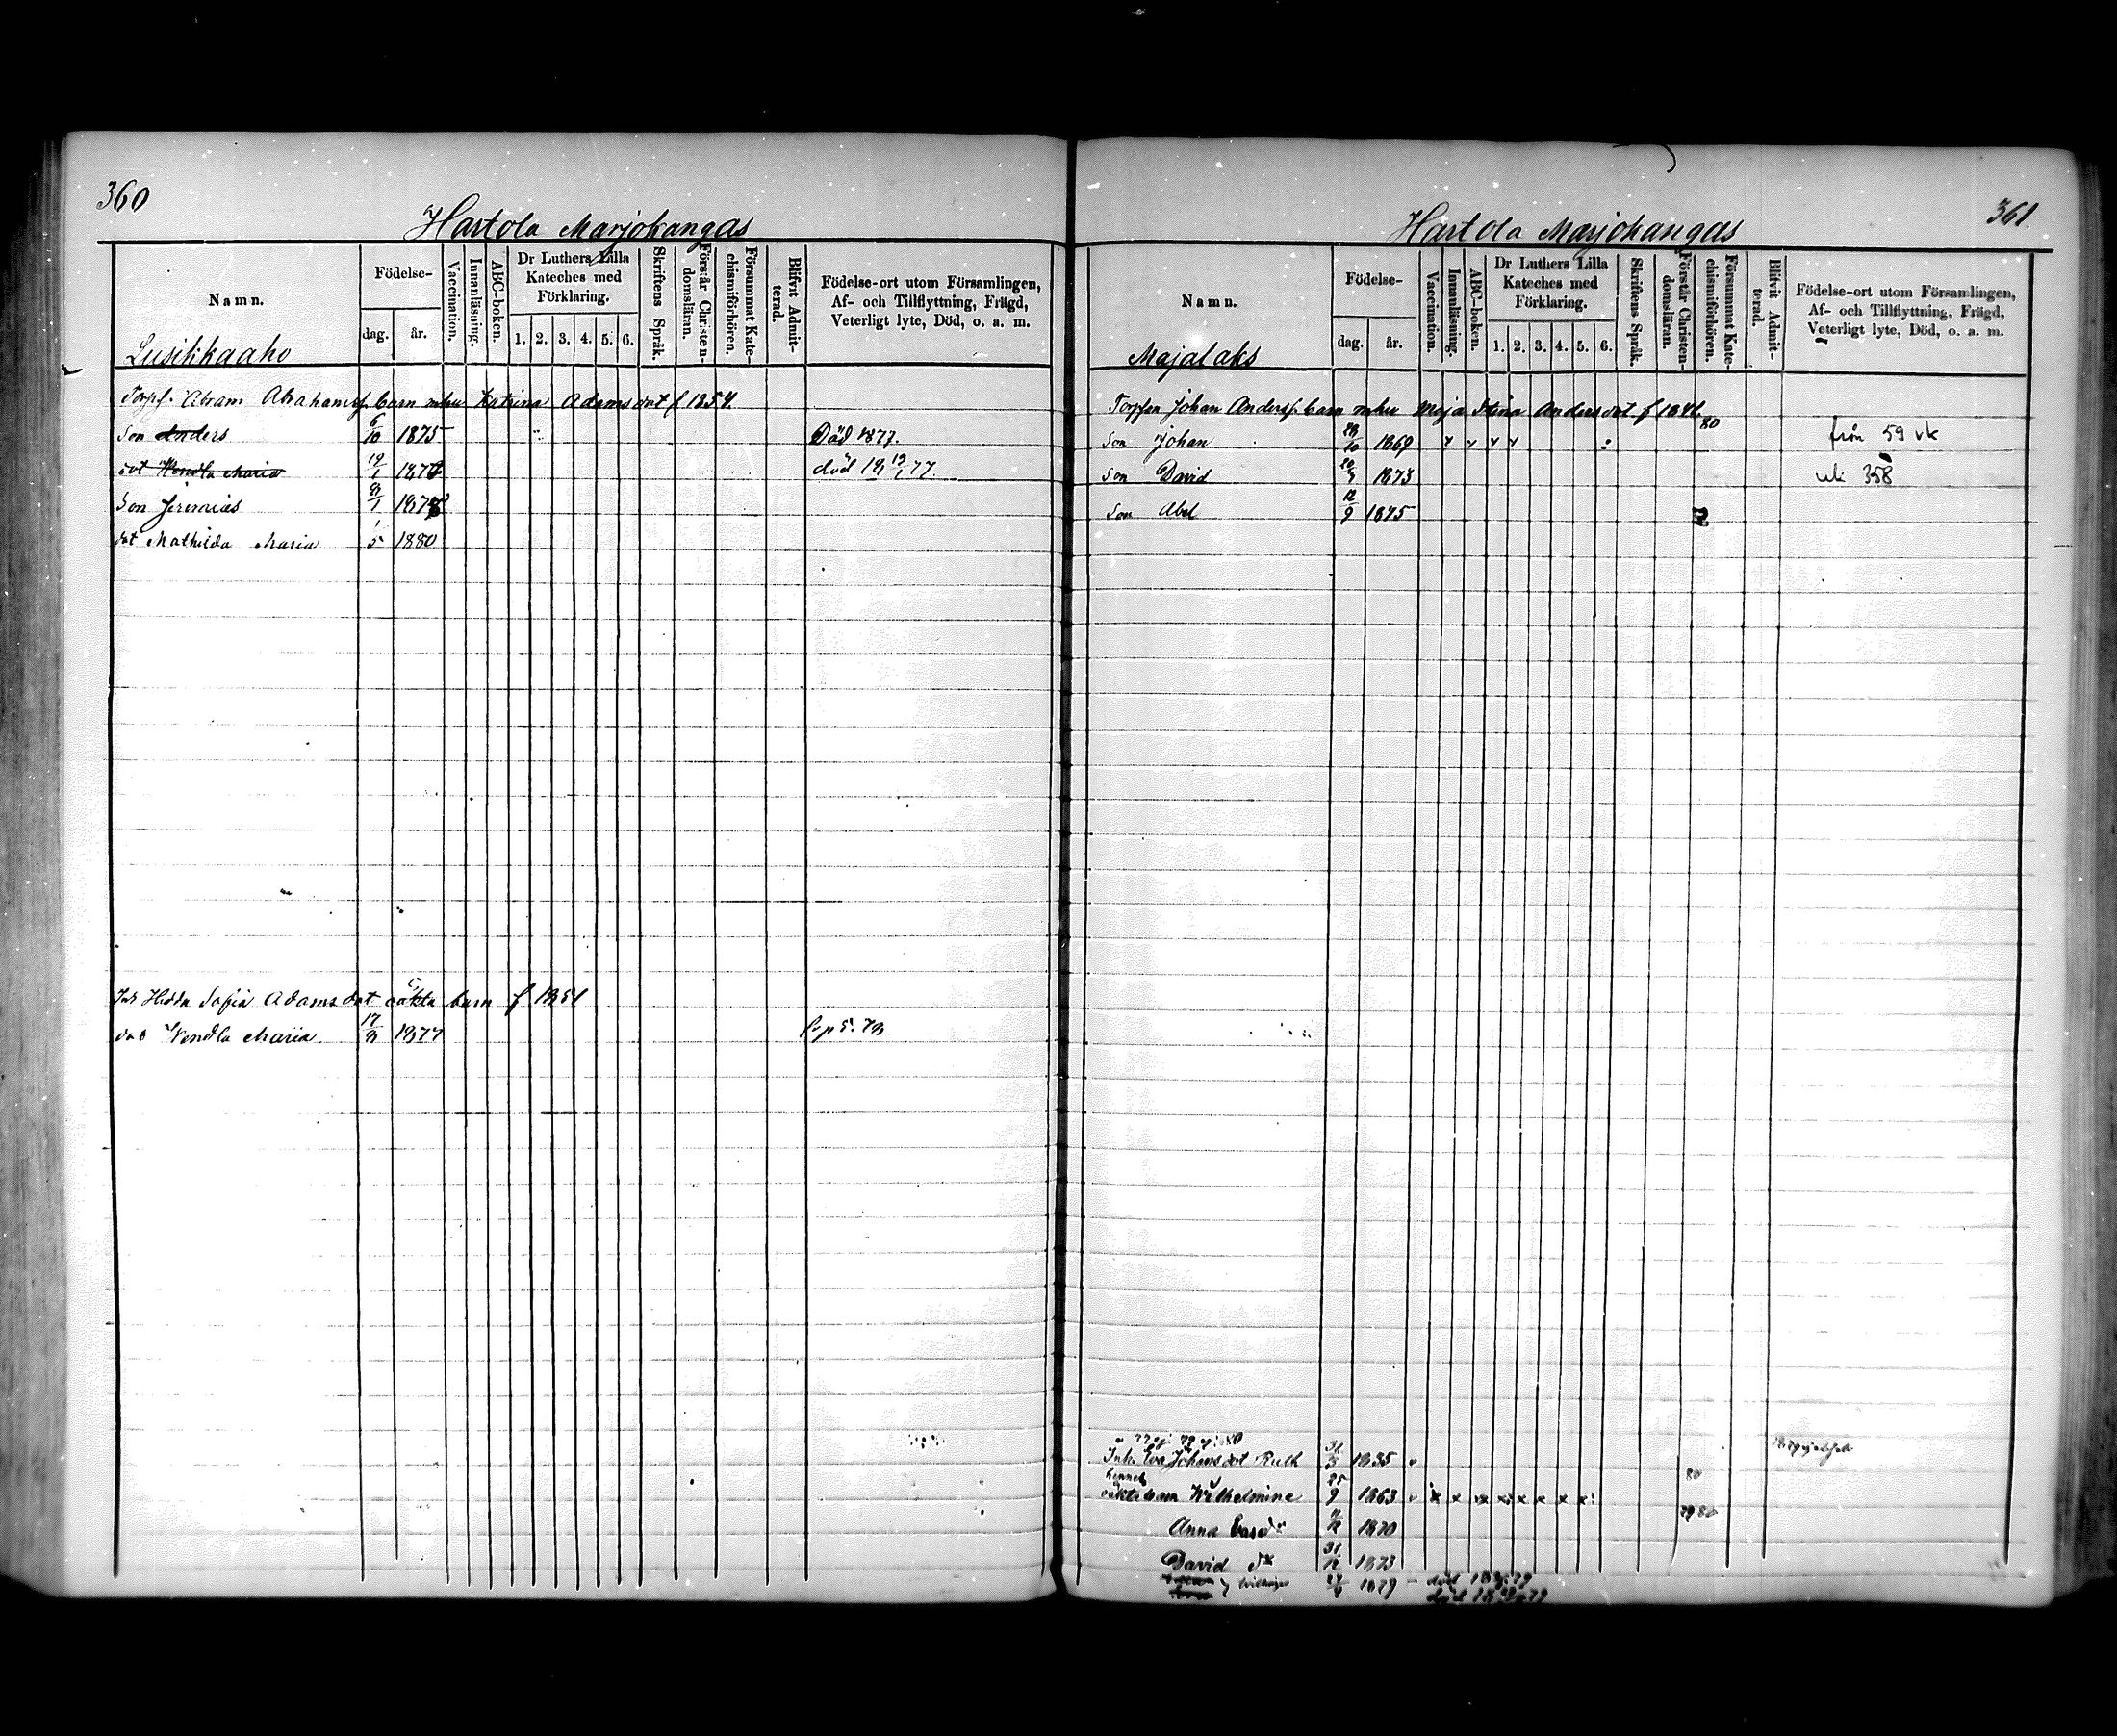 360
Hartola Marjokangas
Namn.
Födelse-
dag.
år.
Vaccination.
Innanläsning.
ABC-boken.
Dr Luthers Lilla
Kateches med
Förklaring.
1. 2. 3. 4. 5. 6.
Skriftens Språk.
Förstår Christen-
domsläran.
Försummat Kate-
chismiförhören.
Blifvit Admit-
terad.
Födelse-ort utom Församlingen,
Af- och Tillflyttning, Frägd,
Veterligt lyte, Död, o. a. m.
Lusikkaaho
Abram Abrahamss barn mhu Katrina Adamsdot f 1854.
Son Anders 6/10 1875 Död 1877.
dot Wendla Maria 19/1 1877 död 18 19/1 77.
Son Jeremias 1878
dot Mathilda Maria 1/5 1880
Hedda Sofia Adamsdot oäkta barn f 1851
dot Wendla Maria 17/8 1877
361.
Hartola Marjokangas
Namn.
Födelse-
dag.
år.
Vaccination.
Innanläsning.
ABC-boken.
Dr Luthers Lilla
Kateches med
Förklaring.
1. 2. 3. 4. 5. 6.
Skriftens Språk.
Förstår Christen-
domsläran.
Försummat Kate-
chismiförhören.
Blifvit Admit-
terad.
Födelse-ort utom Församlingen,
Af- och Tillflyttning, Frägd,
Veterligt lyte, Död, o. a. m.
Majalaks
Johan Anderss barn mhu Maja Stina Andersdot f 1841.
Son Johan 28/10 1869 80 från 59 vk
Son David 1873 358
Son Abel 12/9 1875
Inh. Eva Johansdot Ruth 31/3 1835
hennes
oäkta barn Wilhelmine 25/9 1863 80
Anna 1870 79 80
David 31/12 1873
1879 död